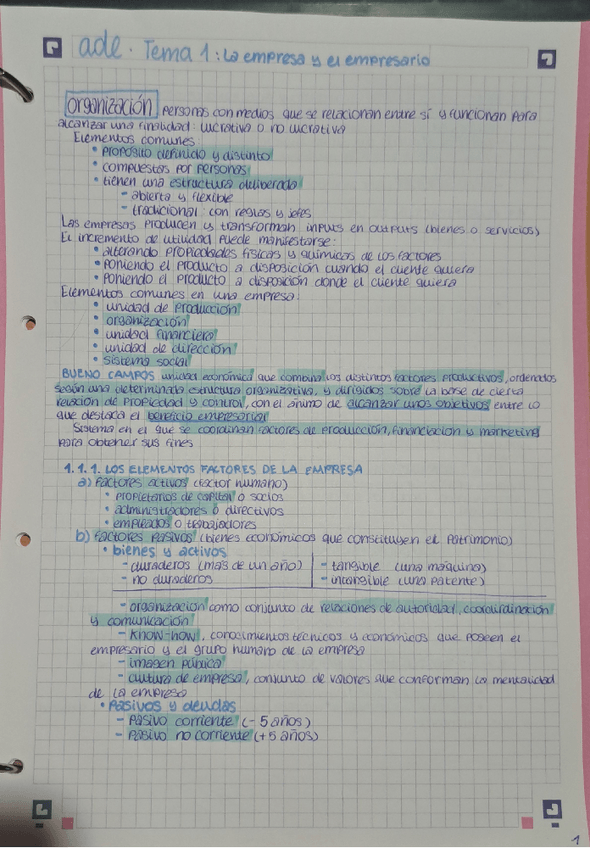 ade. Tema 1: La empresa y el empresario
organización personas con medios que se relacionan entre sí y funcionan para
alcanzar una finalidad: lucrativa o no lucrativa
Elementos comunes
• propósito definido y distinto
• compuestas por personas
• tienen una estructura deliberada
- abierta y flexible
- tradicional: con reglas y jefes
Las empresas producen y transforman inputs en outputs (bienes o servicios)
El incremento de utilidad puede manifestarse:
• alterando propiedades físicas y químicas de los factores
• Poniendo el producto a disposición cuando el cliente quiera
• Poniendo el producto a disposición donde el cliente quiera
Elementos comunes en una empresa:
• unidad de producción
• organización
• unidad financiera
• unidad de dirección
• sistema social
BUENO CAMPOS unidad económica que combina los distintos factores productivos, ordenados
según una determinada estructura organizativa, y dirigidos sobre la base de cierta
relación de propiedad y control, con el ánimo de alcanzar unos objetivos entre lo
que destaca el beneficio empresarial
Sistema en el que se coordinan factores de producción, financiación y marketing
para obtener sus fines
1.1.1. LOS ELEMENTOS FACTORES DE LA EMPRESA
a) Factores activos (factor humano)
• propietarios de capital o socios
• administradores o directivos
• empleados o trabajadores
b) Factores pasivos (bienes económicos que constituyen el patrimonio)
• bienes y activos
- duraderos (más de un año) - tangible (una máquina)
- no duraderos - intangible (una patente)
- organización como conjunto de relaciones de autoridad, coordinación
y comunicación
- know-how, conocimientos técnicos y económicos que poseen el
empresario y el grupo humano de la empresa
- imagen pública
- cultura de empresa, conjunto de valores que conforman la mentalidad
de la empresa
• Pasivos y deudas
- Pasivo corriente (- 5 años)
- Pasivo no corriente (+ 5 años)
1